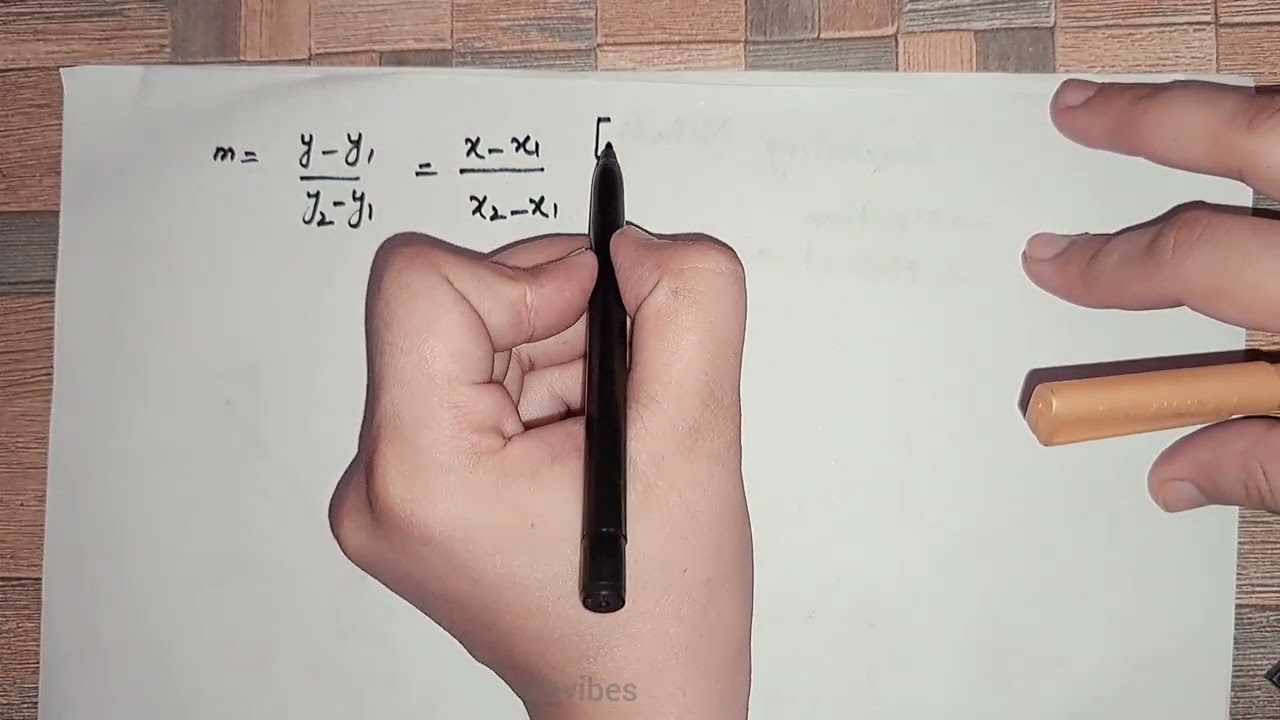 m = y - y₁ / y₂ - y₁ = x - x₁ / x₂ - x₁ [
vibes